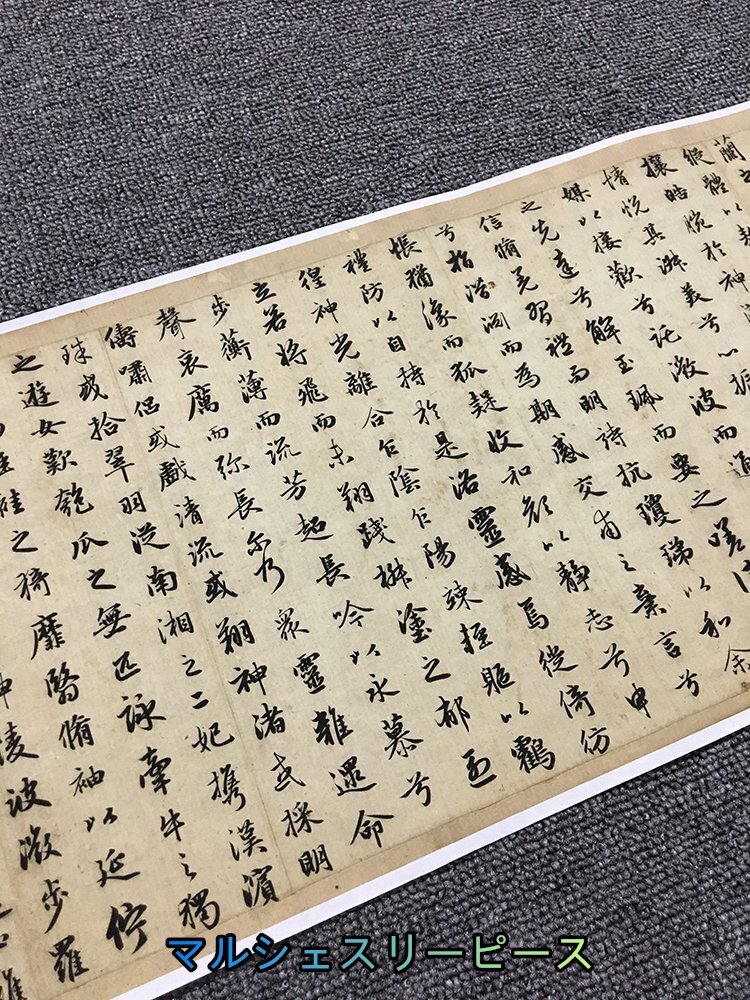 蘭之
縱體以
攘皓腕於神
情悅其淑美兮心振
媒以接歡兮託微波而通
之先達兮解玉珮而要之嗟
信脩羌習禮而明詩抗瓊珶以和余
兮指潛淵而為期感交甫之棄言兮
悵猶豫而狐疑收和顏以靜志兮申
禮防以自持於是洛靈感焉徙倚仿
徨神光離合乍陰乍陽竦輕軀以鶴
立若將飛而未翔踐椒塗之郁烈
步蘅薄而流芳超長吟以永慕兮
聲哀厲而彌長爾乃眾靈雜遝命
儔嘯侶或戲清流或翔神渚或採明
珠或拾翠羽從南湘之二妃攜漢濱
之遊女歎匏瓜之無匹詠牽牛之獨
袿之猗靡翳脩袖以延佇
神陵波微步羅
マルシェスリーピース